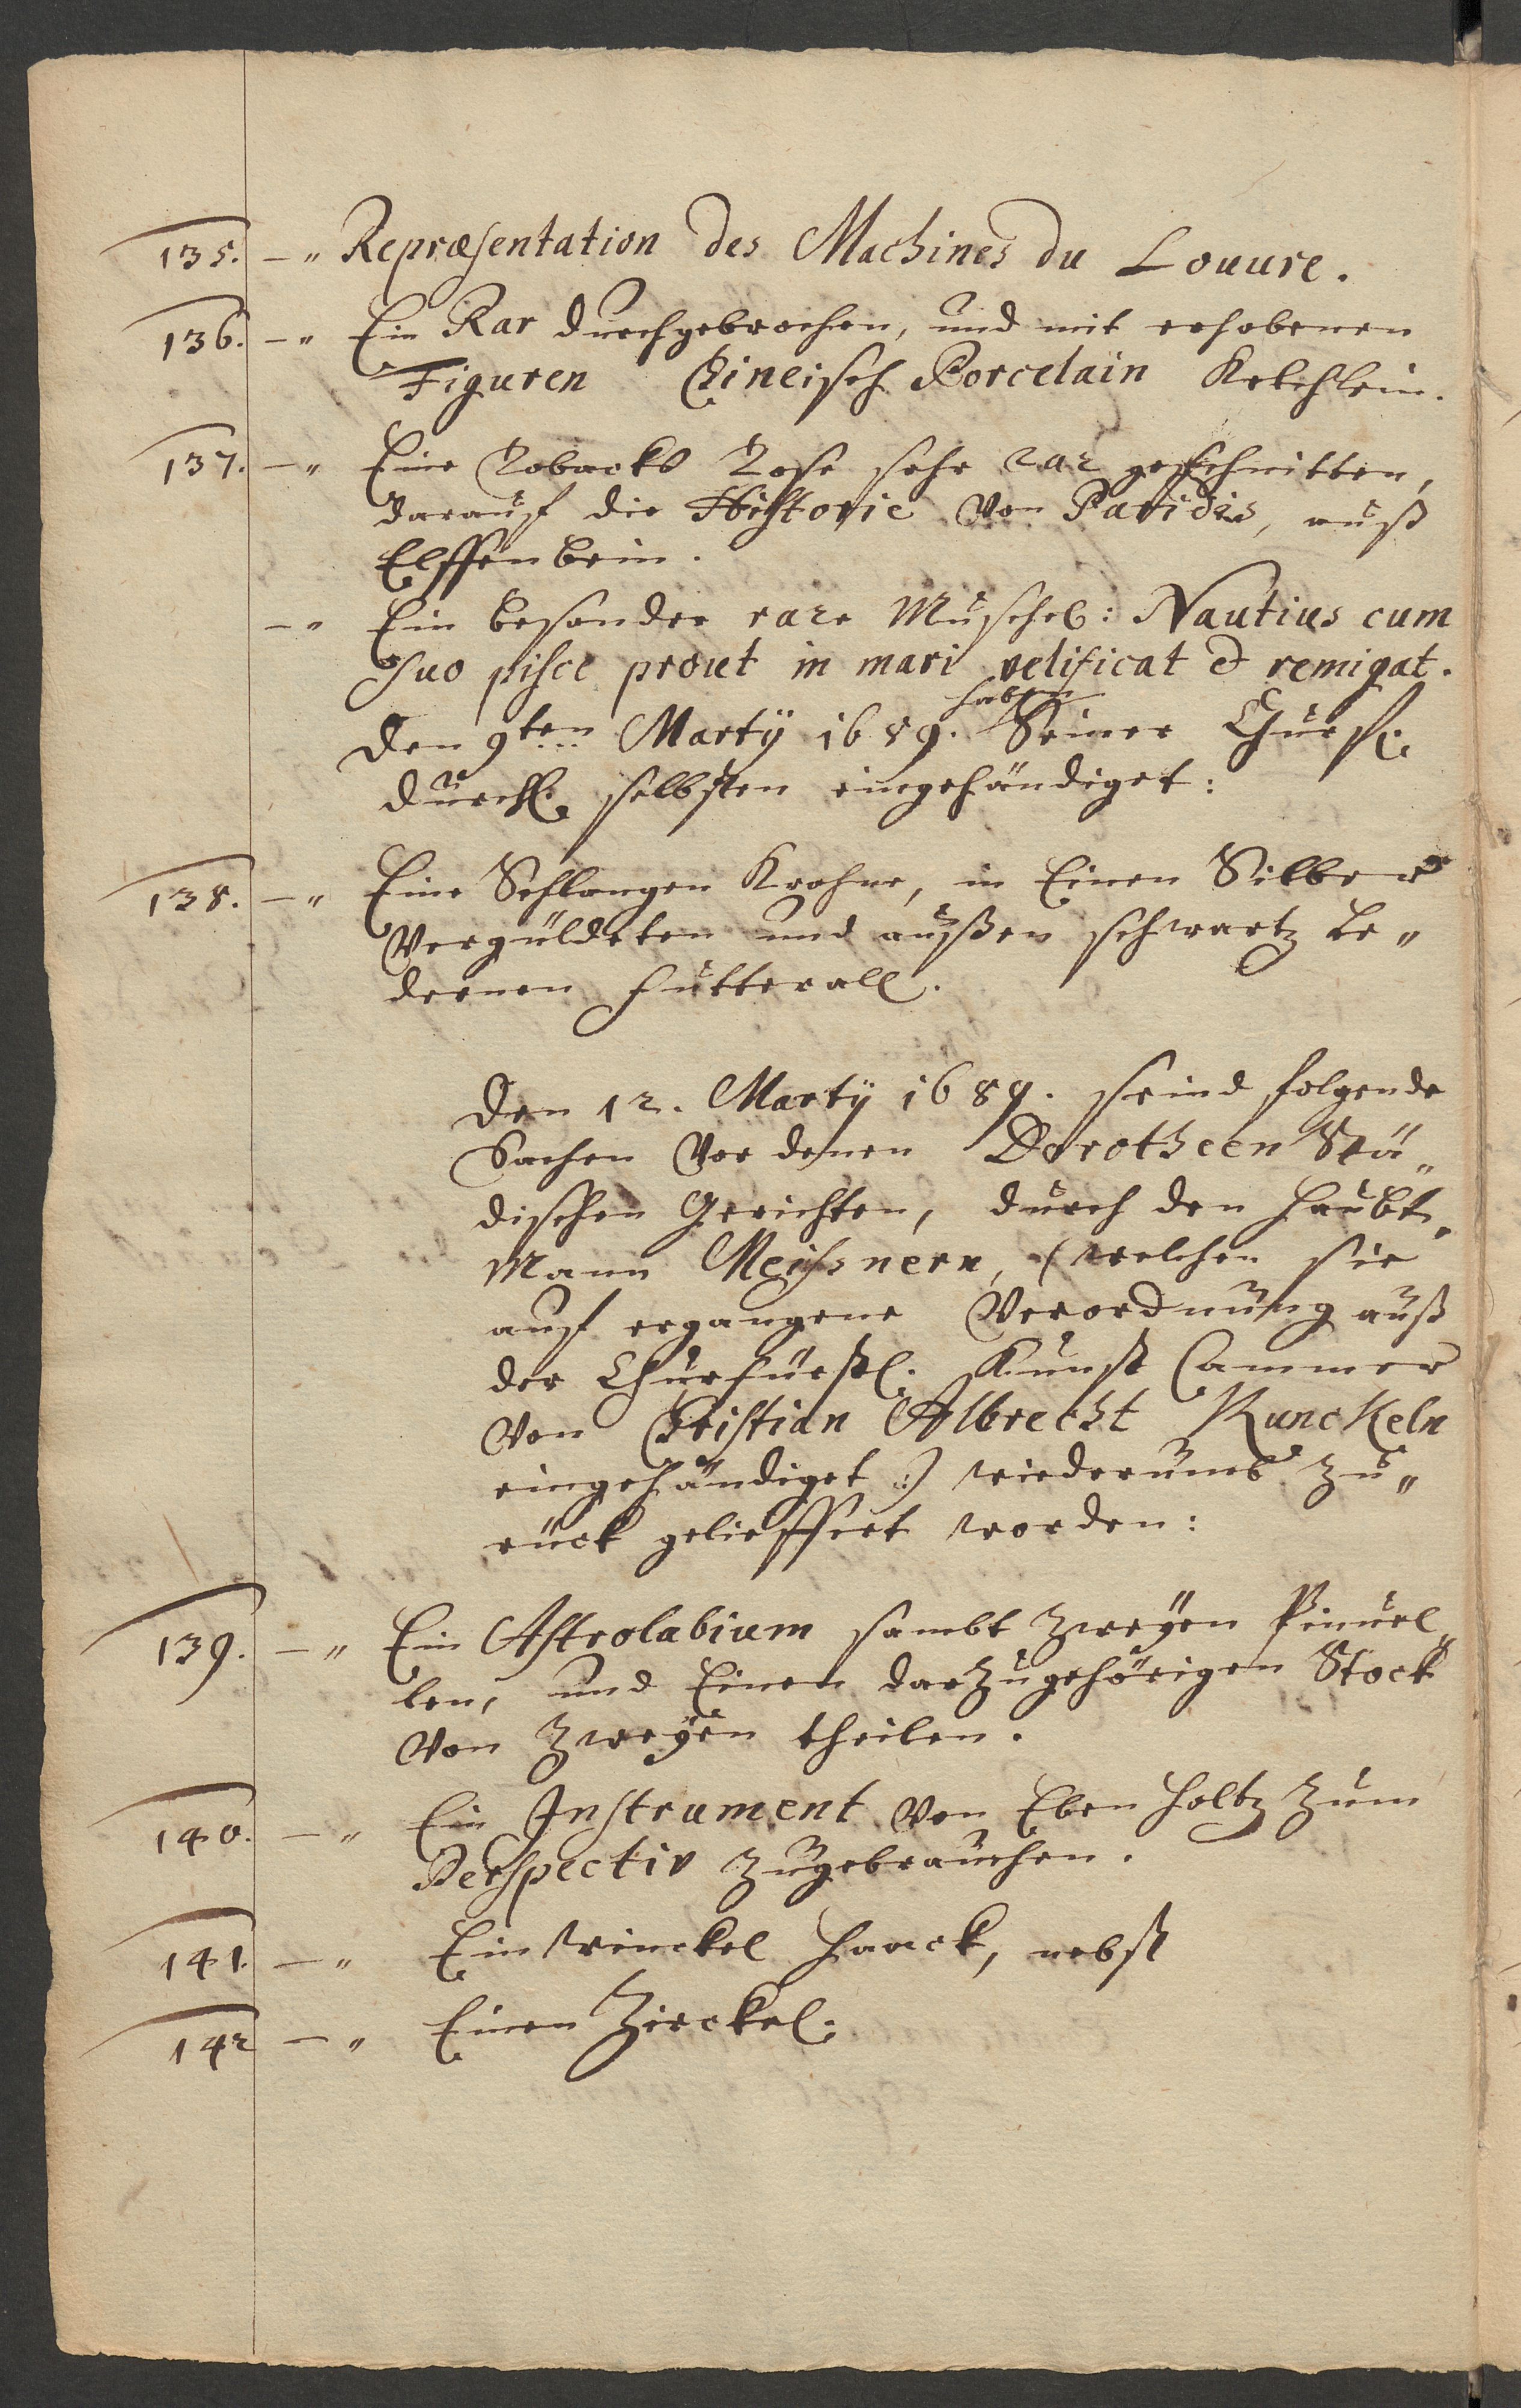 135. -" Repræsentation des Machines du Louure.
136. -" Ein Rar durchgebrochen, und mit erhobenen
Figuren Chineisch Porcelain Kelchlein.
137. -" Eine Tobacks Dose sehr rar geschnitten,
darauf die Historie von Paridis, auß
Elffenbein.
-" Ein besonder rare Muschel: Nautius cum
suo pisce prout in mari velificat & remigat.
haben
Den 9ten Martÿ 1689. Seiner Churfl.
Durchl. selbsten eingehändiget:
138. -" Eine Schlangen Krohne, in Einen Silber
Vergüldeten und außen schwartz le„
dernen Futterall.
Den 12. Martÿ 1689. seind folgende
Sachen Vor denen Dorotheen Stä„
dischen Gerichten, durch den Haubt„
Mann Meissnern, (welchen sie
auf ergangene Verordnung auß
der Churfürstl. Kunst Cammer
von Christian Albrecht Kunckeln
eingehändiget :) wiederumb zu„
rück gelieffert worden:
139. -" Ein Astrolabium sambt zweÿen Pinuel„
len, und Einen darzugehörigen Stock
von zweÿen theilen.
140. -" Ein Instrument von Eben Holtz zum
Perspectiv zugebrauchen.
141. -" Ein Winckel Haack, nebst
142 -" Einen Zirckel.